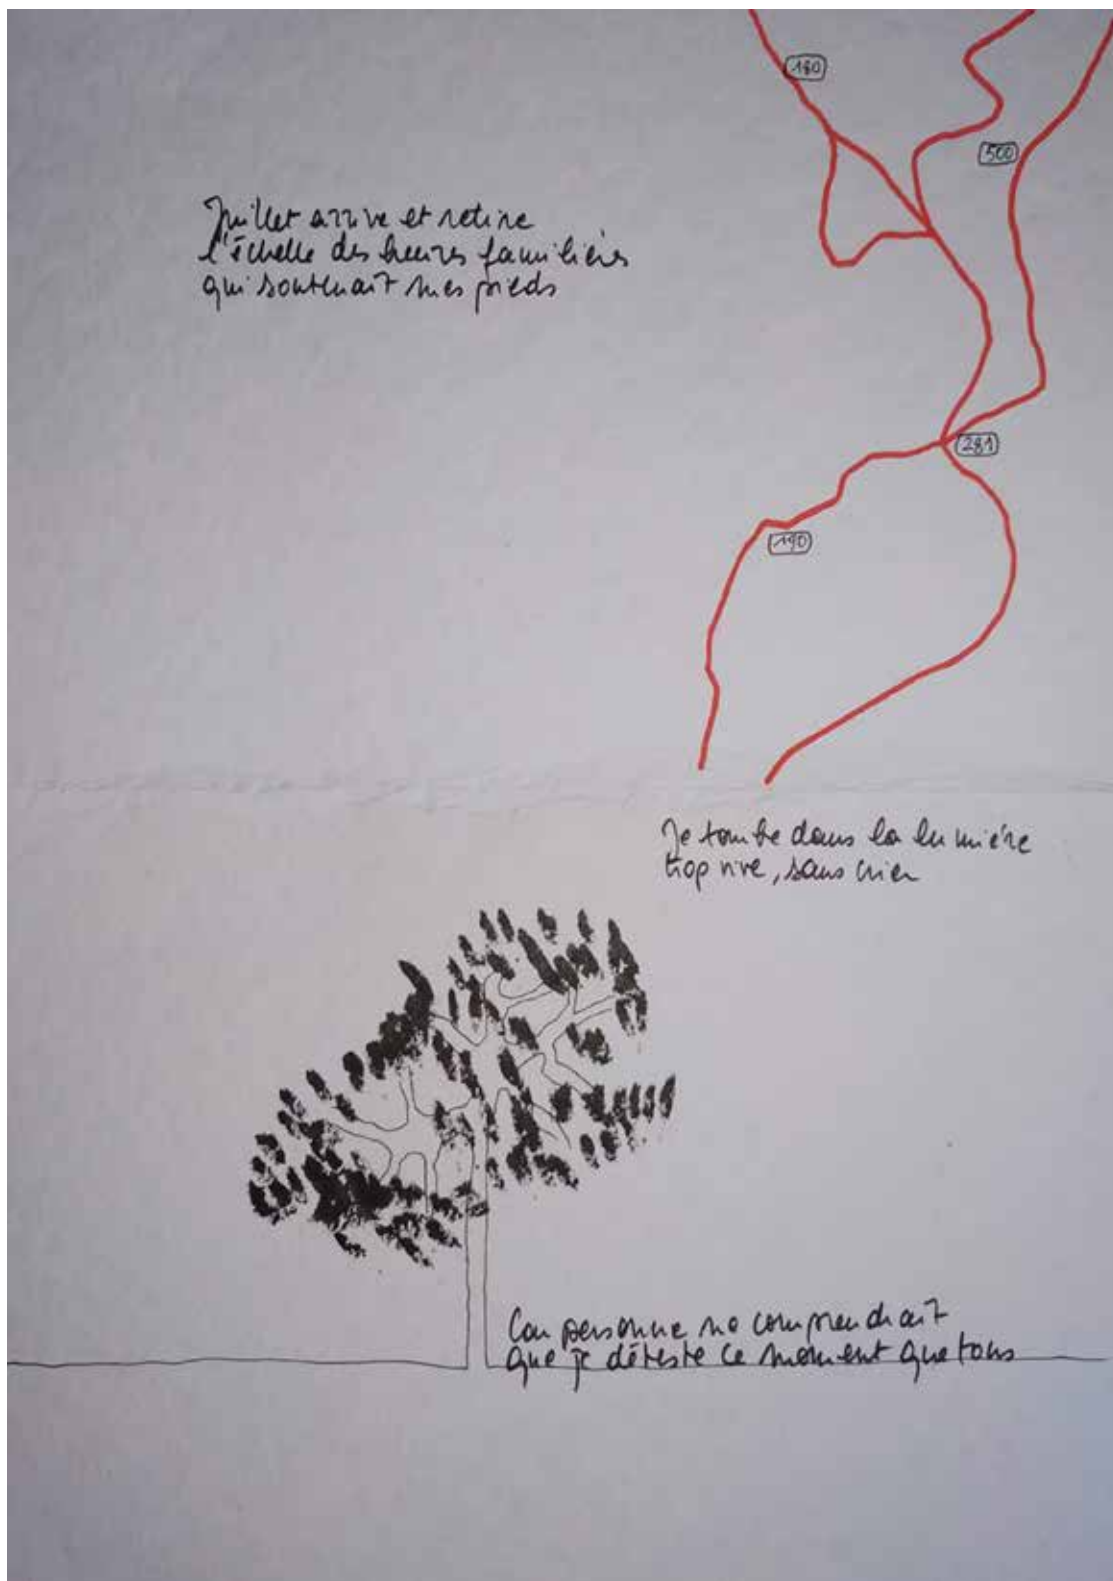 180
500
Juillet arrive et retire
l'échelle des heures familières
qui soutenait mes pieds
281
190
Je tombe dans la lumière
trop vive, sans crier
Car personne ne comprendrait
que je déteste ce moment que tous